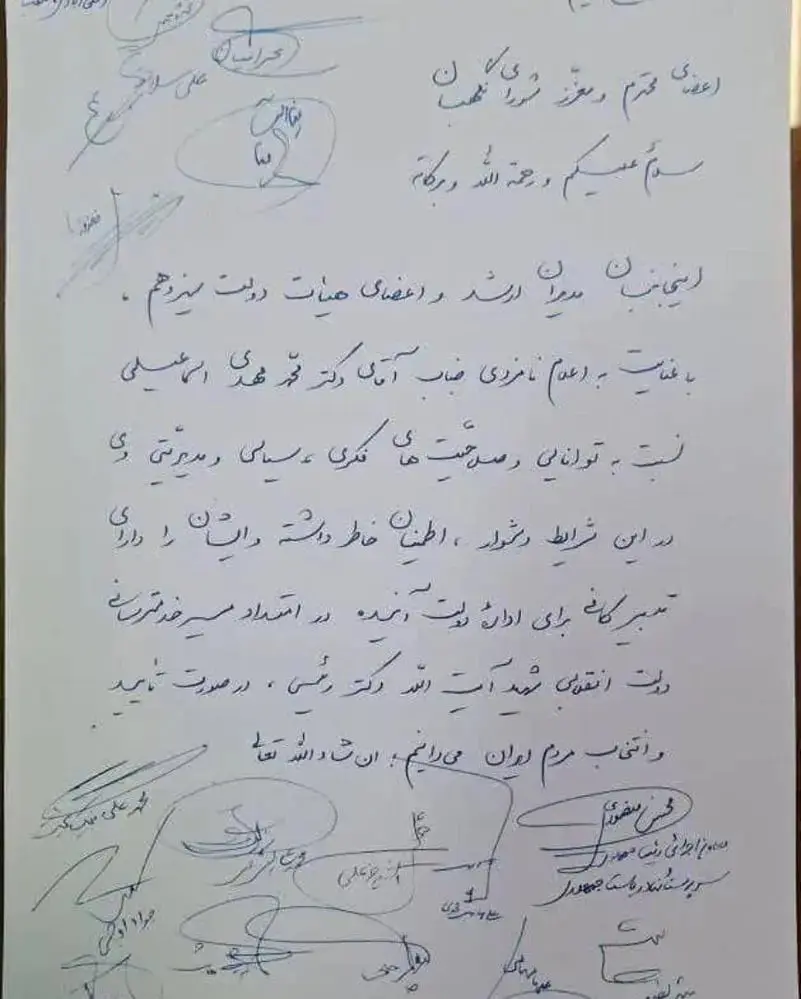 بحرالعلوم
علی سلاجقه
اعضای محترم و معزّز شورای نگهبان
سلامٌ علیکم و رحمة الله و برکاته
اینجانبان مدیران ارشد و اعضای هیأت دولت سیزدهم،
با عنایت به اعلام نامزدی جناب آقای دکتر محمّد مهدی اسماعیلی
نسبت به توانایی و صلاحیّت های فکری، سیاسی و مدیریّتی وی
در این شرایط دشوار، اطمینان خاطر داشته و ایشان را دارای
تدبیر کافی برای ادارۀ دولت آینده در امتداد مسیر خدمترسانی
دولت انقلابی شهید آیت الله دکتر رئیسی، در صورت تأیید
و انتخاب مردم ایران می‌دانیم؛ ان شاء الله تعالی
محسن منصوری
معاون اجرائی رئیس جمهور
سرپرست نهاد ریاست جمهوری
جواد اوجی